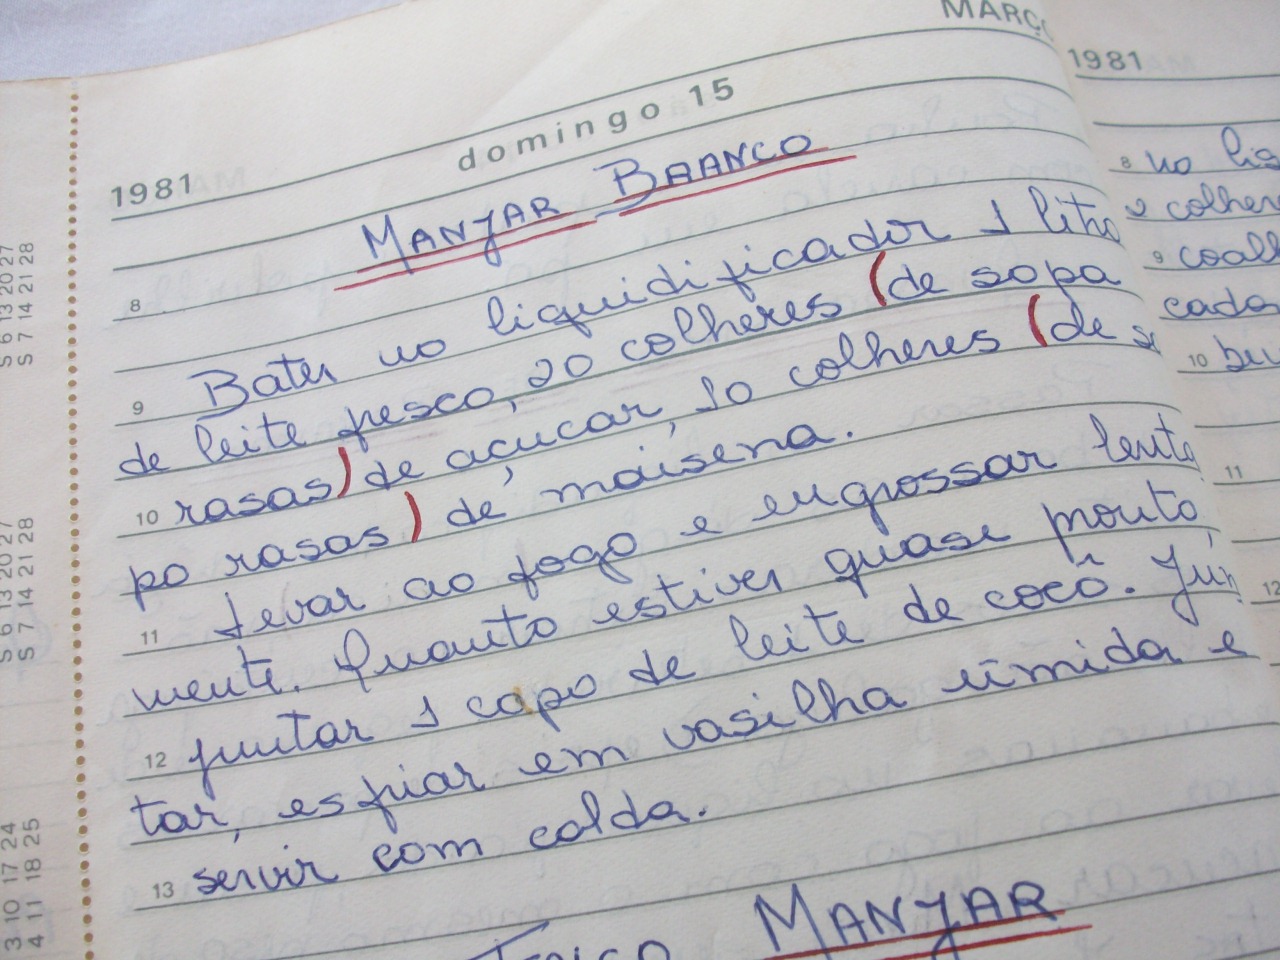 MARÇO
1981 domingo 15
MANJAR BRANCO
8
Bater no liquidificador 1 litro
9 de leite fresco, 20 colheres (de sopa
10 rasas) de açucar, 10 colheres (de so
po rasas) de maisena.
11 Levar ao fogo e engrossar lenta
mente. Quanto estiver quase pronto
12 juntar 1 copo de leite de coco. Jun
tar, esfriar em vasilha úmida e
13 servir com calda.
MANJAR
1981
8 no liq
2 colher
9 coalh
cada
10
11
12
S 6 13 20 27
S 7 14 21 28
S 6 13 20 27
S 7 14 21 28
3 10 17 24
4 11 18 25